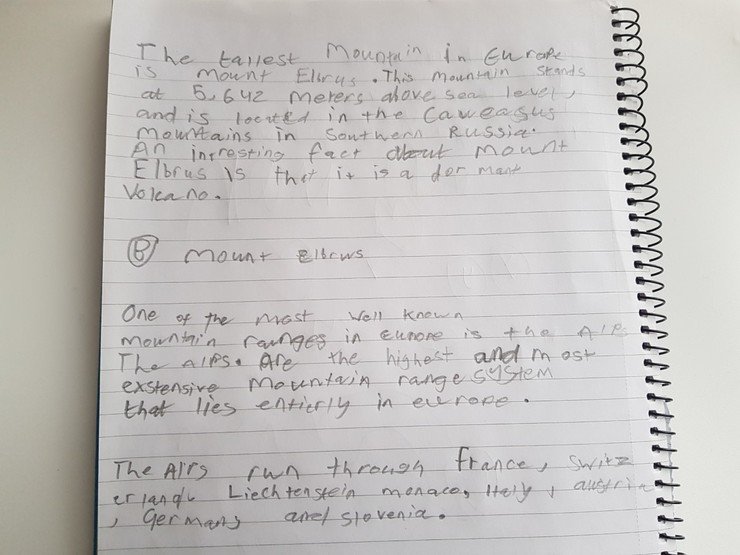 The tallest Mountain in Europe
is mount Elbrus. This mountain stands
at 5,642 meters above sea level,
and is located in the Caweasus
mountains in Southern Russia.
An intresting fact about mount
Elbrus is that it is a dormant
Volcano.
B mount Elbrws
One of the most well known
mountain ranges in Europe is the Alps
The Alps. Are the highest and most
exstensive Mountain range system
that lies entierly in europe.
The Alps run through france, Switz
erland, Liechtenstein monaco, Italy, austria
, Germany and slovenia.